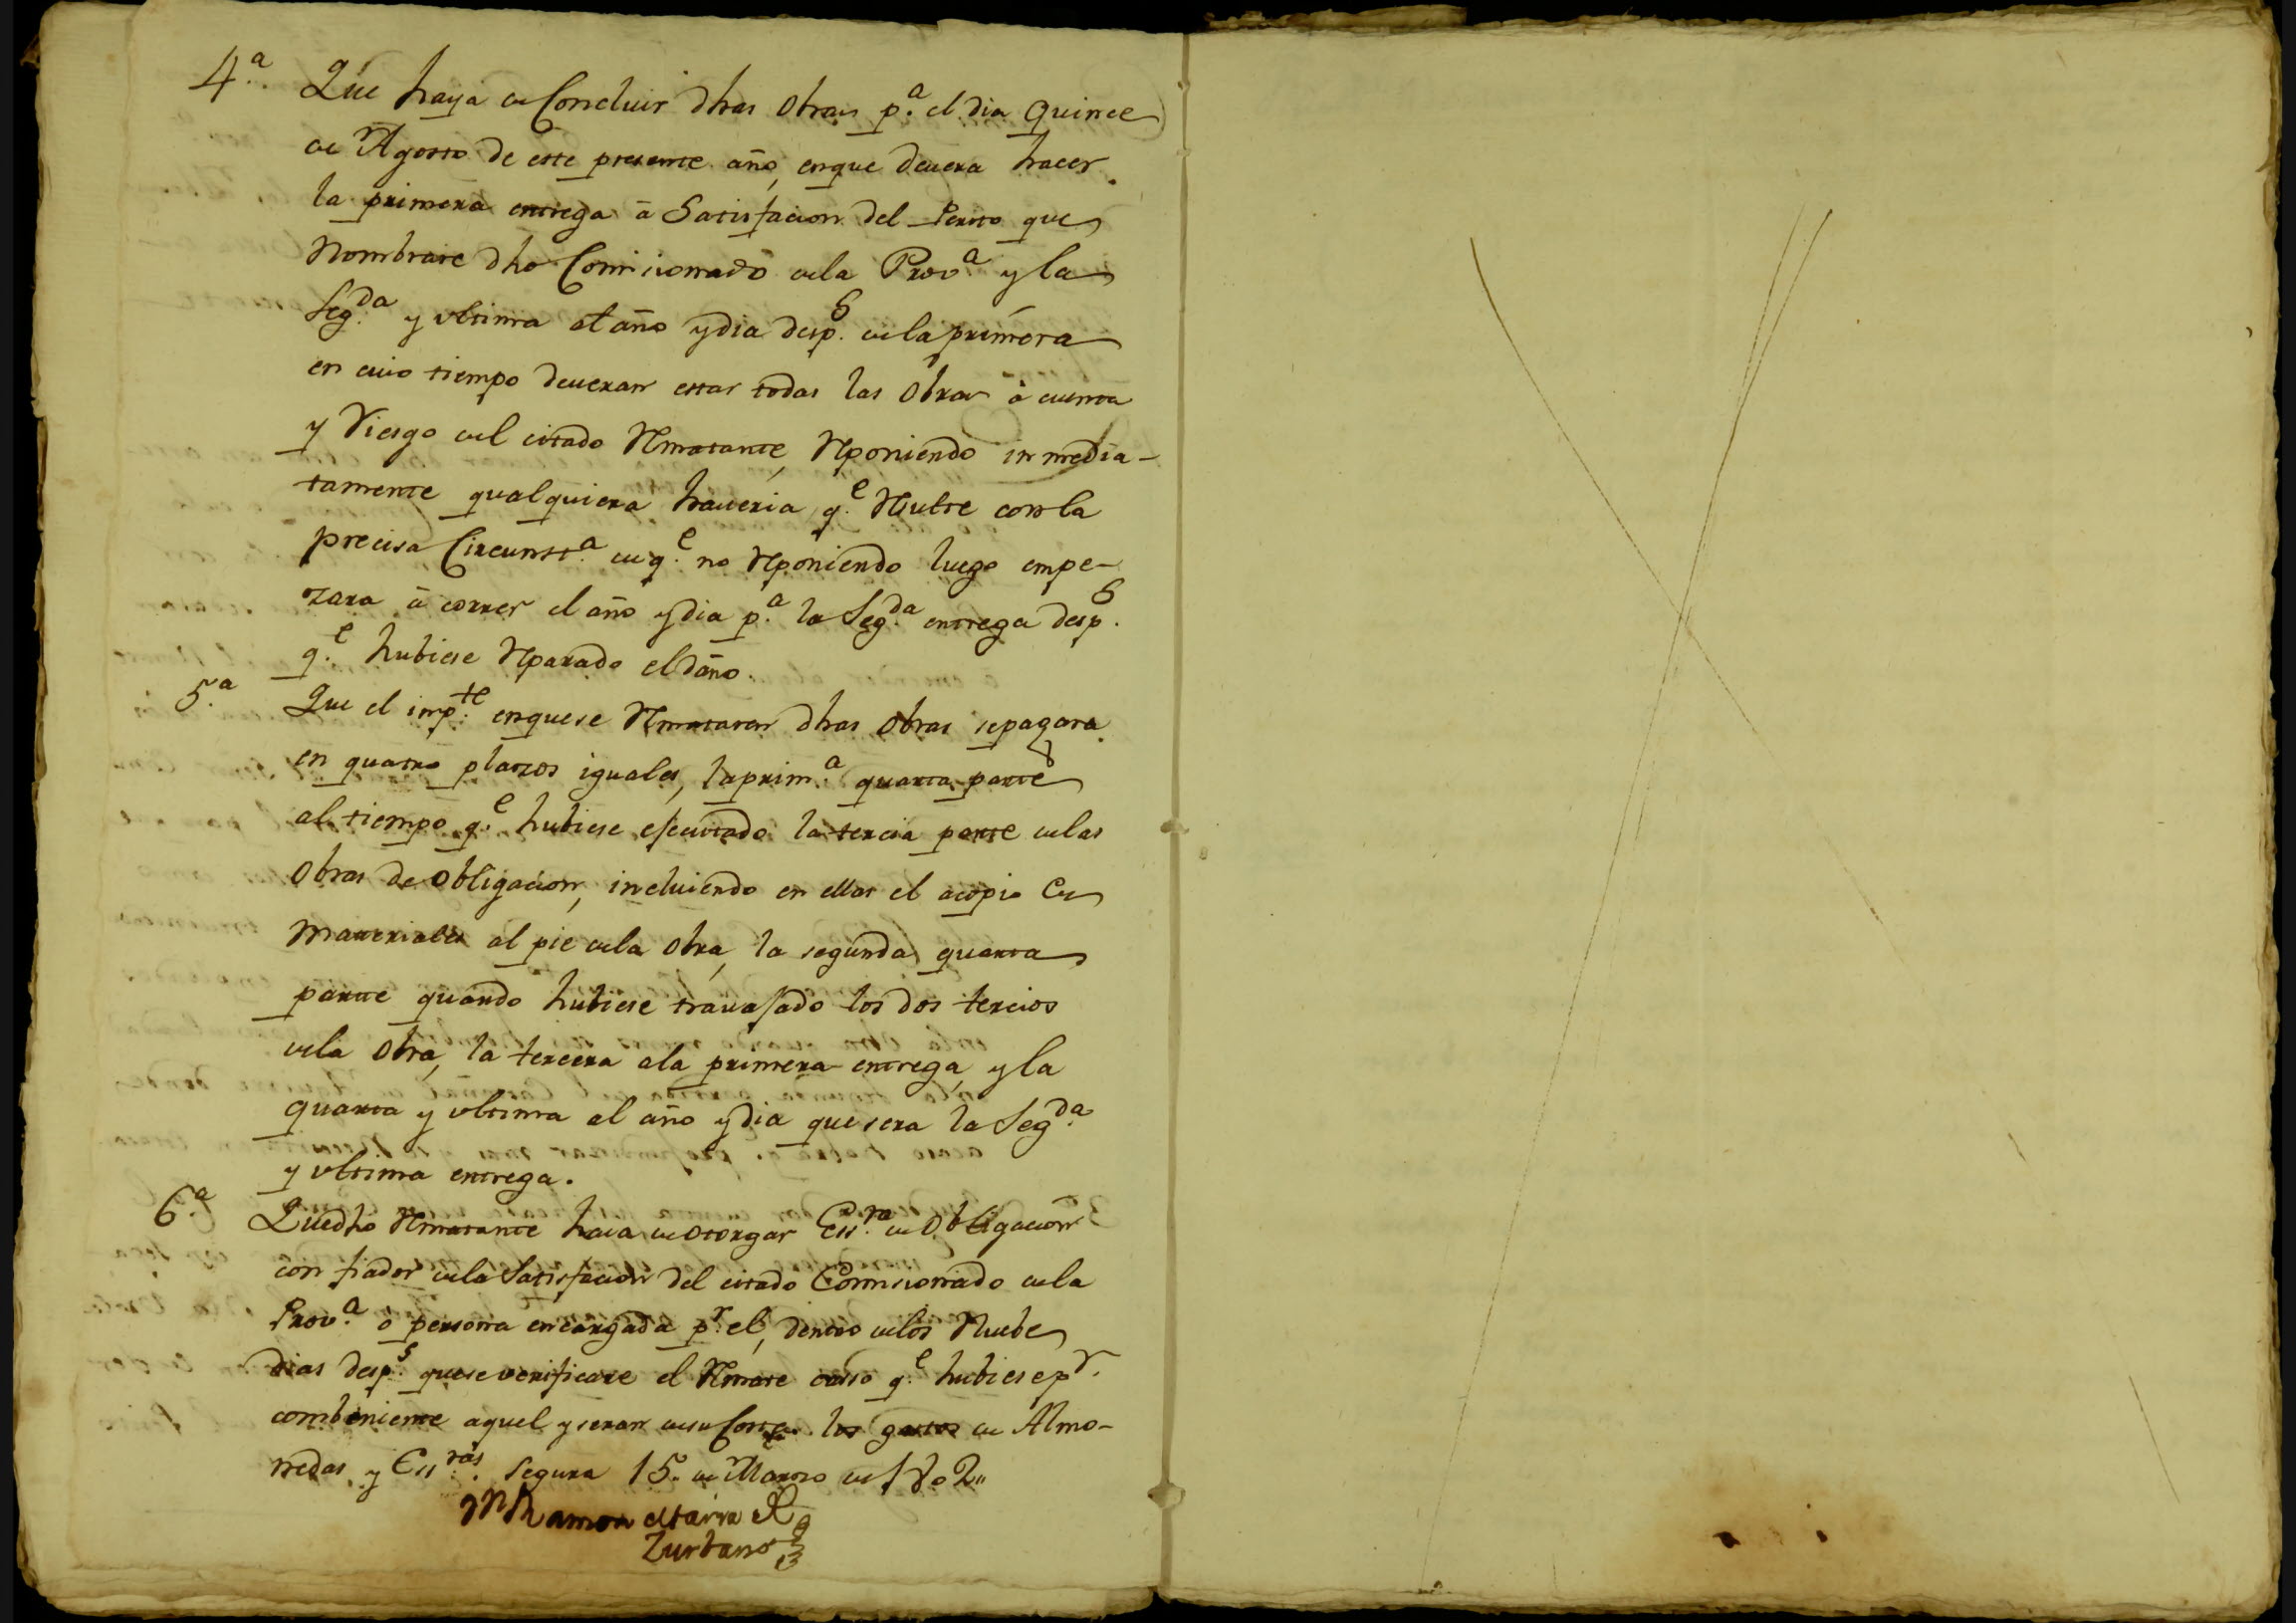 4.ª Que haya de Concluir dhas Obras p.ª el dia quince
de Agosto de este presente año, enque devera hacer
la primera entrega â Satisfacion del Perito que
Nombrare dho Comicionado dela Prov.ª y la
Seg.da y vltima al año y dia desp.s dela primera
en cuio tiempo deveran estar todas las Obras â cuenta
y Riesgo del citado Rematante, Reponiendo inmedia-
tamente qualquiera haveria q.e Resulte con la
precisa Circunst.ª de q.e no Reponiendo luego empe-
zara â correr el año y dia p.ª la Seg.da entrega desp.s
q.e hubiese Reparado el daño.
5.ª Que el imp.te enquese Remataren dhas Obras sepagara
en quatro plazos iguales, laprim.ª quarta parte
al tiempo q.e hubiese ejecutado la tercia parte delas
Obras de Obligacion, incluiendo en ellas el acopio de
Materiales al pie dela Obra, la segunda quarta
parte quando hubiese travajado los dos tercios
dela Obra, la tercera ala primera entrega, y la
quarta y vltima al año y dia que sera la Seg.da
y vltima entrega.
6.ª Quedho Rematante haia de otorgar Ess.ra de Obligacion
con fiador dela Satisfacion del citado Comisionado dela
Prov.ª ó persona encargada p.r el, dentro delos Nuebe
dias desp.s quese verificare el Remate casso q.e hubiese p.r
combeniente aquel y seran desu los gastos de Almo-
nedas y Ess.ras. Segura 15. de Marzo de 1802
Ramon Maria de
Zurbano